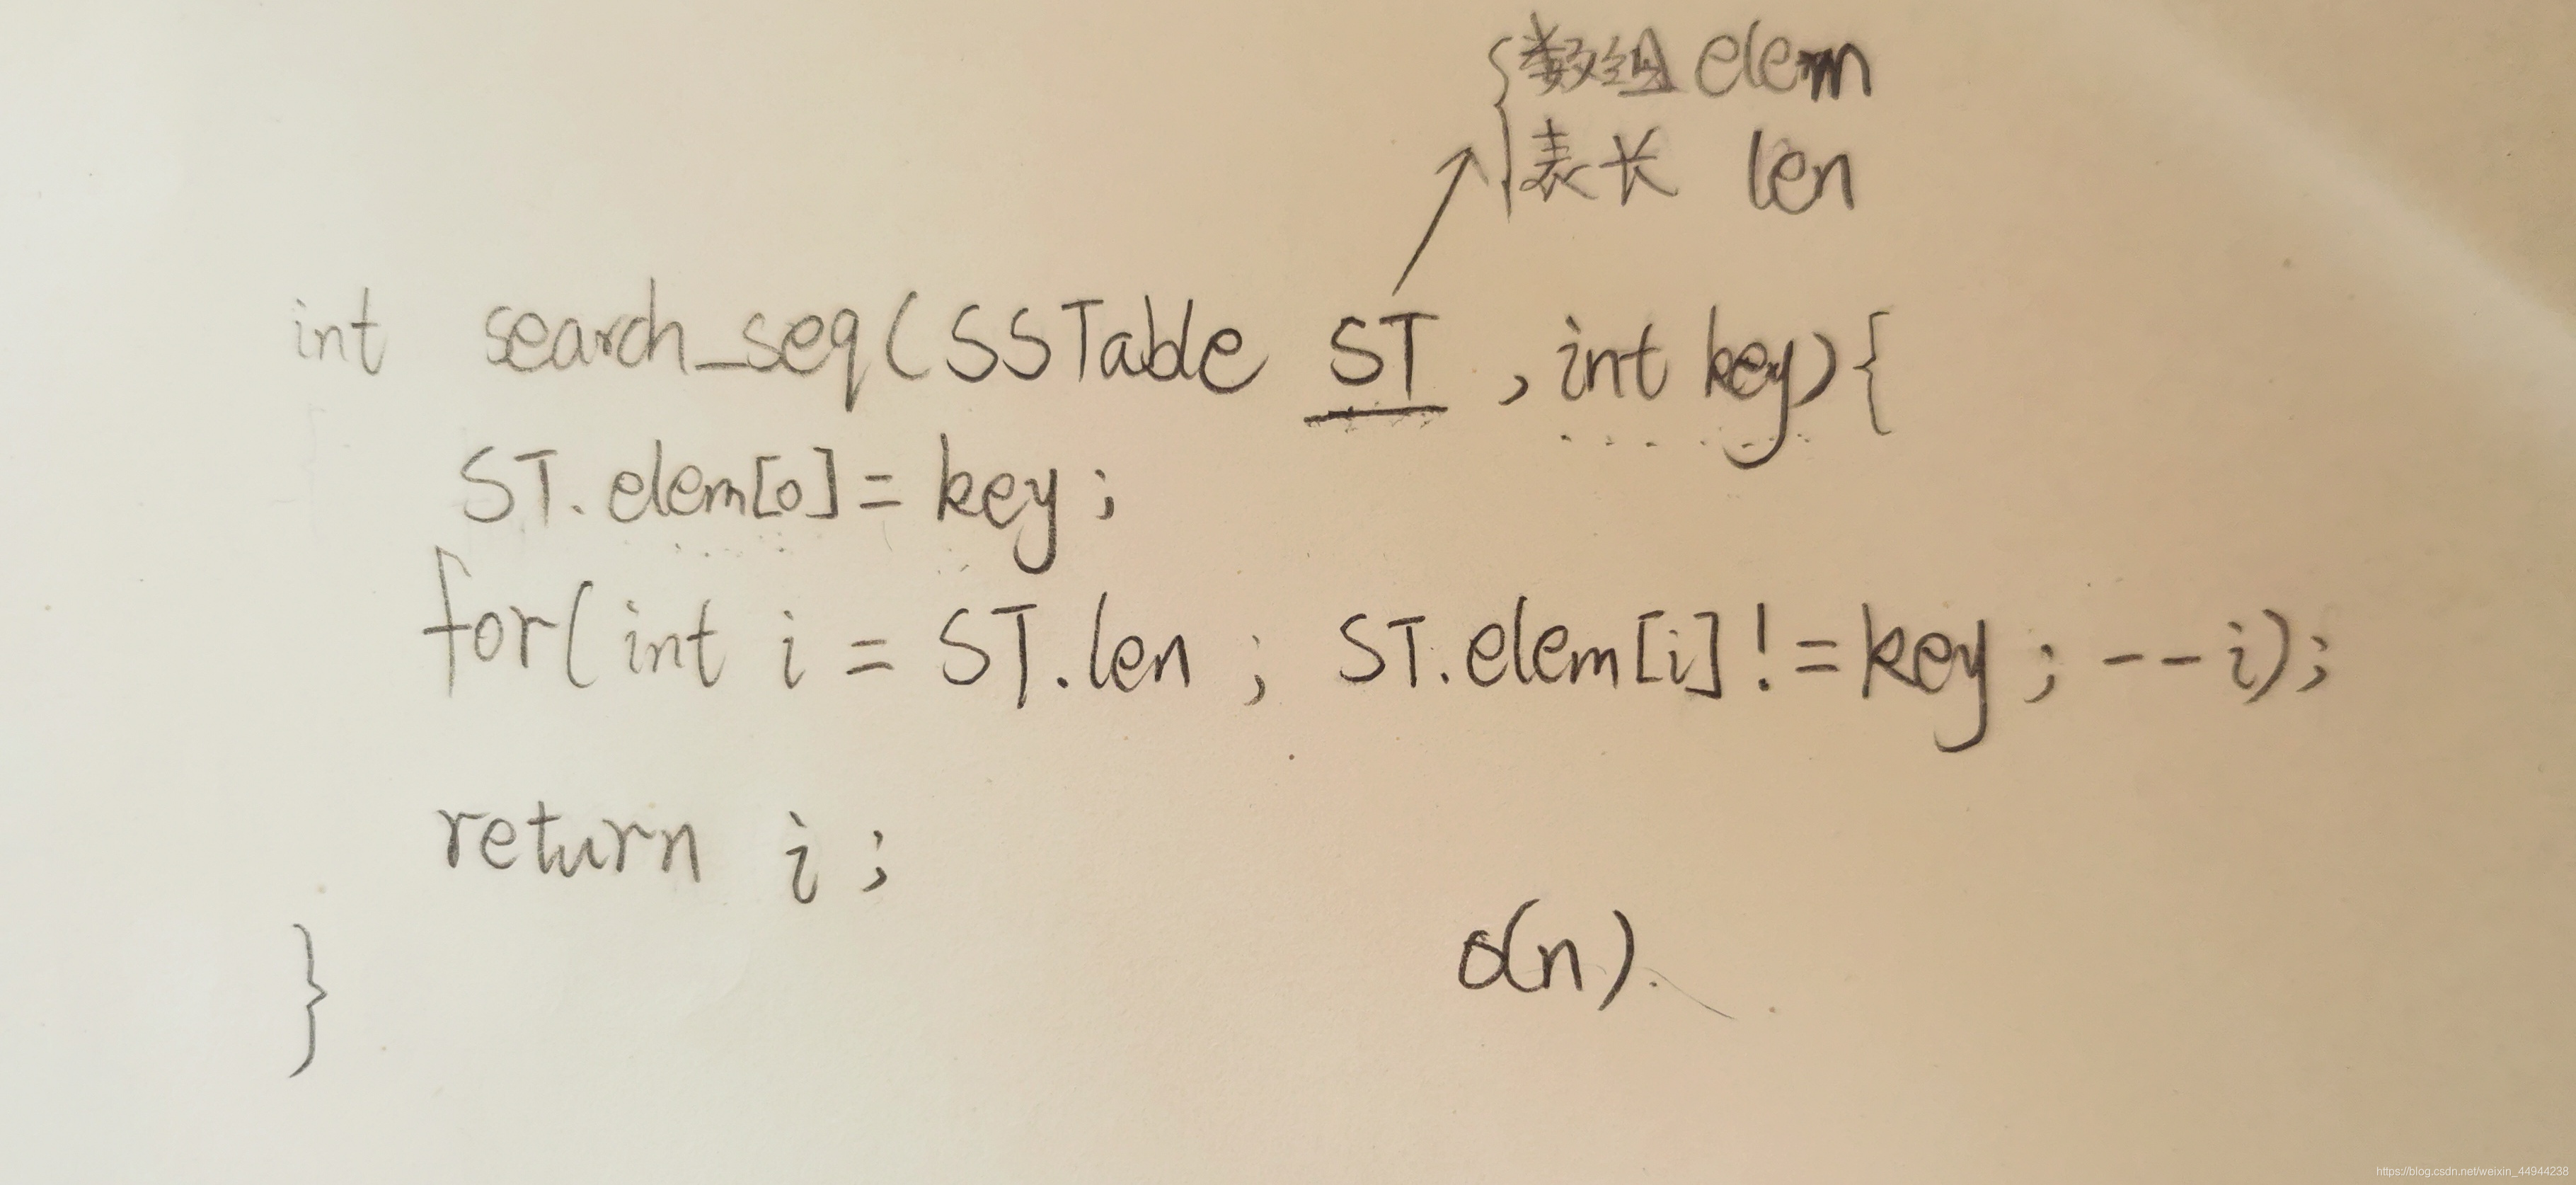 数组 elem
表长 len
int search_seq(SSTable ST , int key){
ST.elem[0] = key ;
for( int i = ST.len ; ST.elem[i] != key ; --i);
return i ;
}
o(n).
https://blog.csdn.net/weixin_44944238